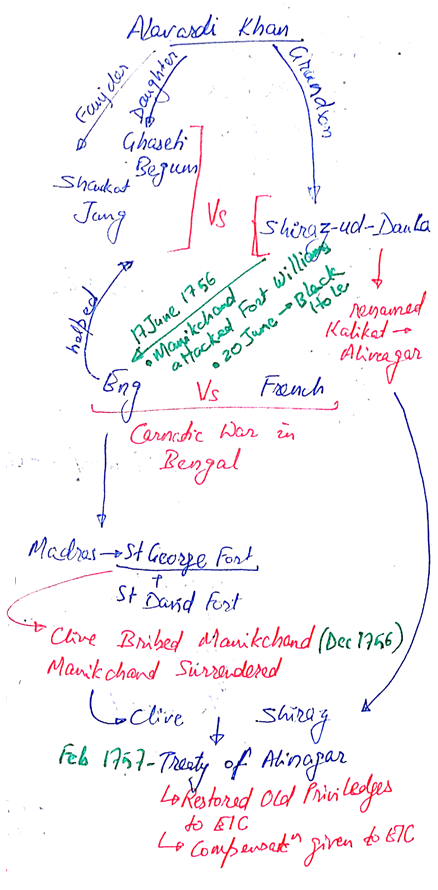 Alavardi Khan
Faujdar
Daughter
Grandson
Ghaseti
Begum
Shaukat
Jang
Vs
Shiraz-ud-Daula
17 June 1756
• Manikchand
attacked Fort William
• 20 June → Black
Hole
renamed
Kalikat →
Alinagar
helped
Eng Vs French
Carnatic War in
Bengal
Madras → St George Fort
+
St David Fort
Clive Bribed Manikchand (Dec 1756)
Manikchand Surrendered
Clive Shiraz
Feb 1757 - Treaty of Alinagar
Restored Old Priviledges
to EIC
Compensatⁿ given to EIC